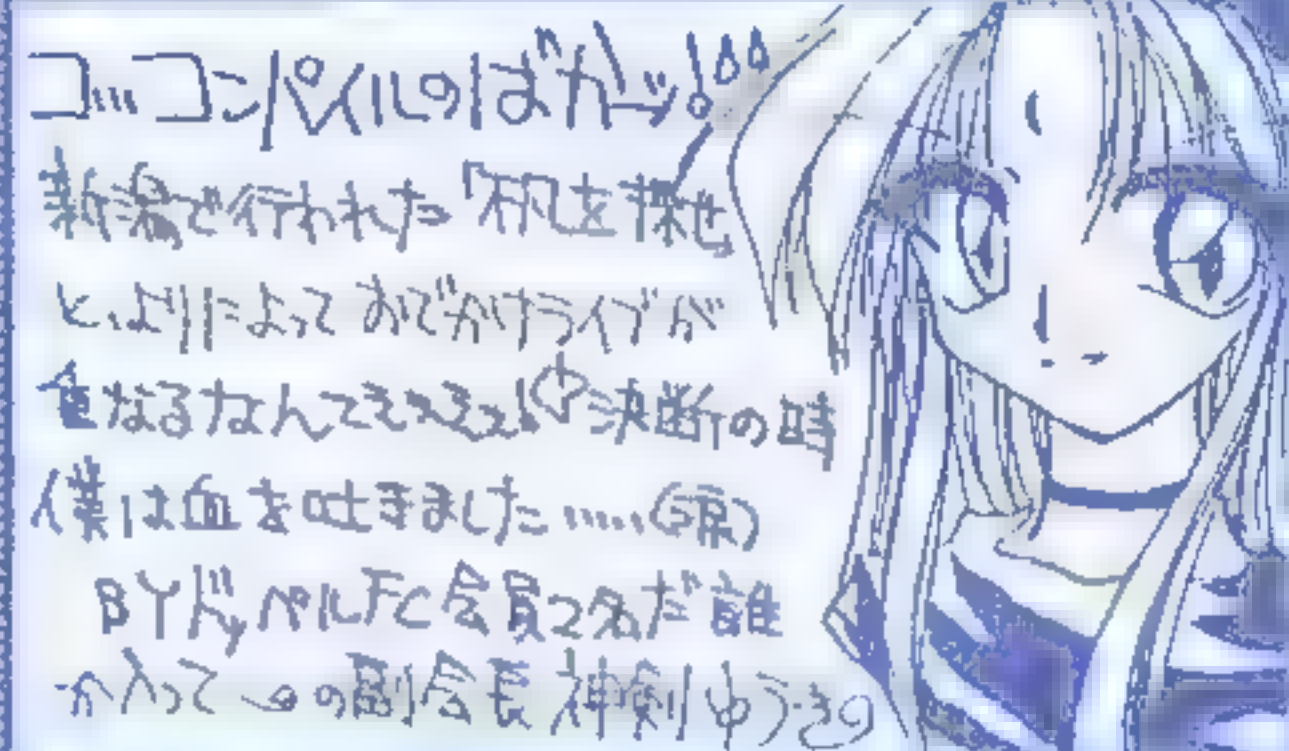 コ…コンパイルのばかーッ!!!
新潟で行われた「不尽を探せ
と、よりによっておでかけライブが
重なるなんてええええ!決断の時
僕は血を吐きました……(涙)
BYドッペルFC会員2名だ誰
か入って〜の副会長 神剣ゆうき